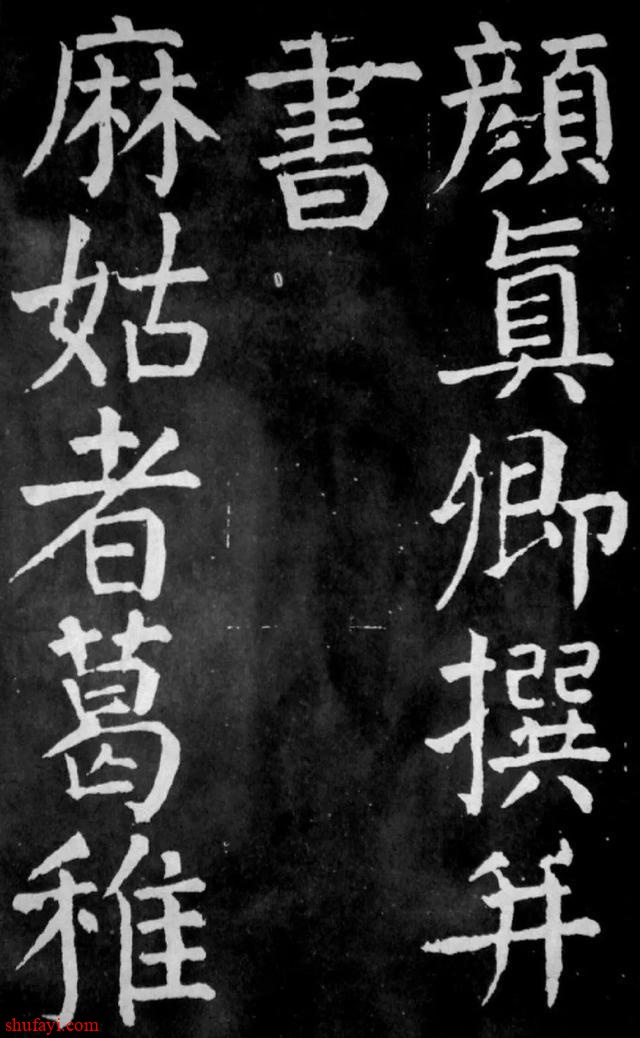 顏眞卿撰并
書
麻姑者葛稚
shufayi.com